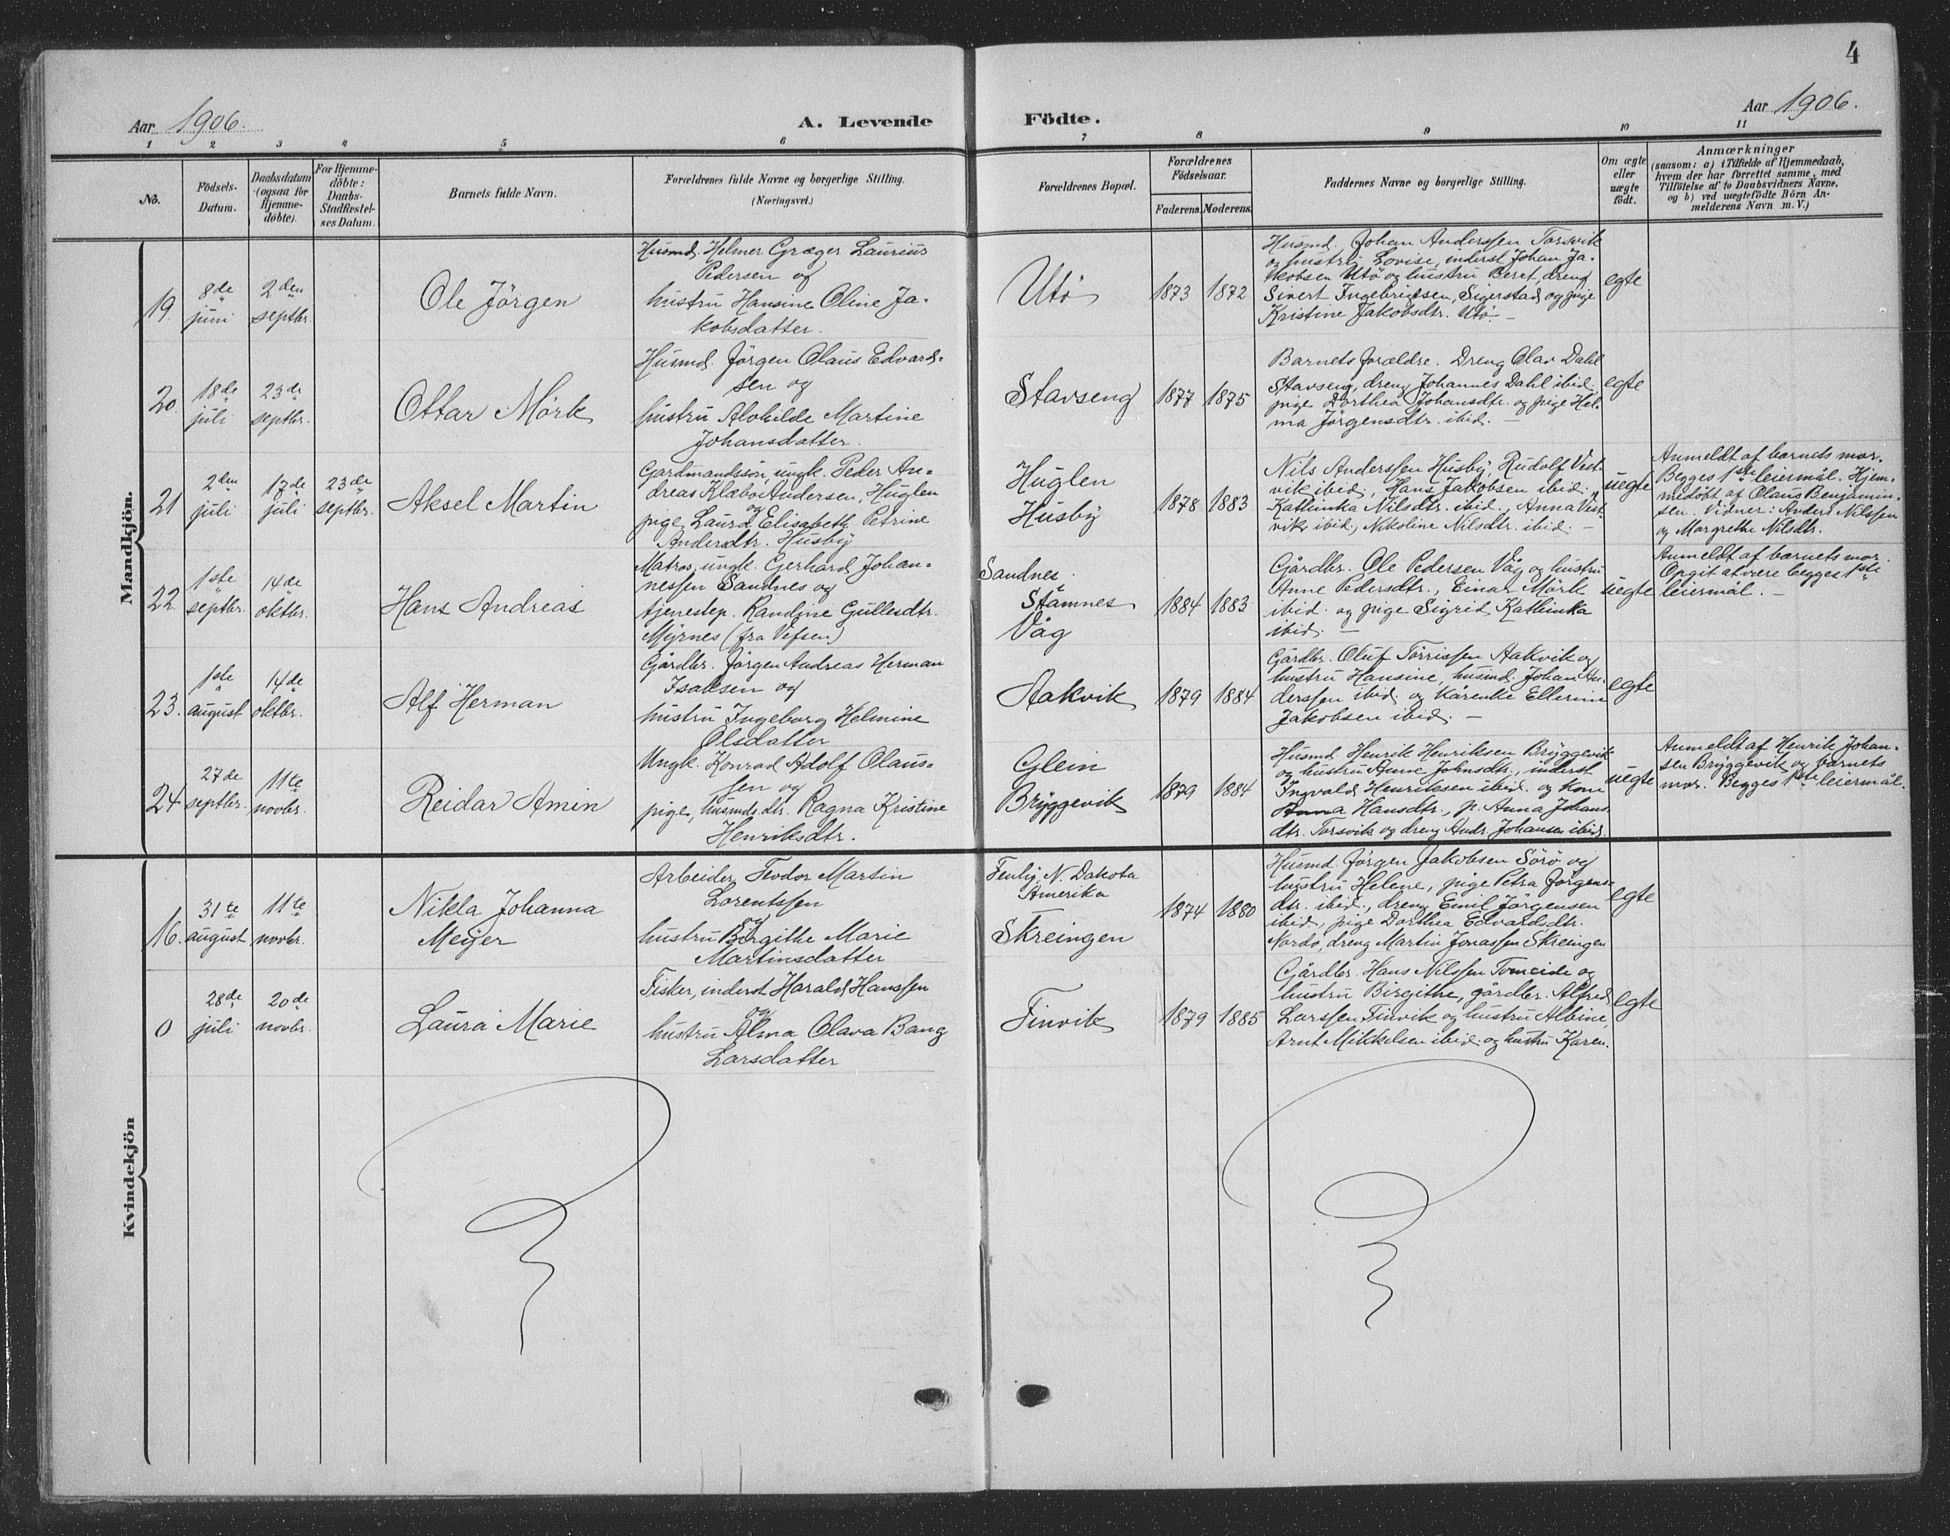 4
Aar 1906.
A. Levende
Födte.
Aar 1906.
1 2 3 4 5 6 7 8 9 10 11
No.
Födsels-
Datum.
Daabsdatum
(ogsaa for
Hjemme-
döbte).
For Hjemme-
döbte:
Daabs-
Stadfæstel-
ses Datum.
Barnets fulde Navn.
Forældrenes fulde Navne og borgerlige Stilling.
(Næringsvei.)
Forældrenes Bopæl.
Forældrenes
Födselsaar.
Faderens. Moderens.
Faddernes Navne og borgerlige Stilling.
Om ægte
eller
uægte
födt.
Anmærkninger
(saasom: a) i Tilfælde af Hjemmedaab,
hvem der har forrettet samme, med
Tilföielse af to Daabsvidners Navne,
og b) ved uægtefödte Börn An-
melderens Navn m. V.)
Mandkjön.
19.
8de
juni
2den
septbr.
Ole Jörgen
Husmd. Helmer Græger Laurius
Pedersen og
hustru Hansine Oline Ja-
kobsdatter.
Utö
1873 1872
Husmd. Johan Anderssen Torsvik
og hustru Lovise, inderst Johan Ja-
kobsen Utö og hustru Beret, dreng
Sivert Ingebrigtsen, Sigerstad og pige
Kristine Jakobsdtr. Utö. –
egte
20.
18de
juli
23de
septbr.
Ottar Mörk
Husmd. Jörgen Olaus Edvard-
sen og
hustru Alvhilde Martine
Johansdatter.
Stavseng
1877 1875
Barnets forældre. Dreng Olav Dahl
Stavseng, dreng Johannes Dahl ibid.
pige Dorthea Johansdtr. og pige Hel-
ma Jörgensdtr. ibid. –
egte
21
2den
juli
17de
juli
23de
septbr.
Aksel Martin
Gardmandssön, ungk. Peder An-
dreas Klæbo Andersen, Huglen
og
pige Laura Elisabeth Petrine
Andersdtr. Husby
Huglen
Husby
1878 1883
Nils Anderssen Husby, Rudolf Vest-
vik ibid., Hans Jakobsen ibid.,
Kathinka Nilsdtr. ibid., Anna Vest-
vik ibid., Nikoline Nilsdtr. ibid. –
uegte
Anmeldt af barnets mor.
Begges 1ste leiermål. Hjem-
medöbt af Olaus Benjamin-
sen. Vidner: Anders Nilssen
og Margrethe Nilsdtr.
22
1ste
septbr.
14de
oktbr.
Hans Andreas
Matros, ungk. Gerhard Johan-
nessen Sandnes og
tjenestep. Randine Gullesdtr.
Myrnes (fra Vefsen)
Sandnes
Stamnes
Våg
1884 1883
Gårdbr. Ole Pedersen Våg og hustru
Anne Pedersdtr., Einar Mörk
ibid. og pige Sigrid Kathinka
ibid. –
uegte
Anmeldt af barnets mor
Opgit at være begges 1ste
leiermål. –
23.
1ste
august
14de
oktbr.
Alf Herman
Gårdbr. Jörgen Andreas Herman
Isaksen og
hustru Ingeborg Helmine
Olsdatter
Aakvik
1879 1884
Gårdbr. Oluf Törrissen Aakvik og
hustru Hansine, husmd. Johan An-
derssen ibid. og Kårenke Ellerine
Jakobsen ibid. –
egte
24
27de
septbr.
11te
novbr.
Reidar Amin
Ungk. Konrad Adolf Olaus-
sen og
pige, husmds.dtr. Ragna Kristine
Henriksdtr.
Glein
Bryggevik
1879 1884
Husmd. Henrik Henriksen Bryggevik
og hustru Anne Johnsdtr., inderst
Ingvald Henriksen ibid. og kone
Anna Hansdtr., p. Anna Johans-
dtr. Torsvik og dreng Andr. Johansen ibid.
uegte
Anmeldt af Henrik Johan-
sen Bryggevik og barnets
mor. Begges 1ste leiermål.
Kvindekjön
16.
31te
august
11te
novbr.
Nikla Johanna
Meyer
Arbeider Teodor Martin
Lorentssen
og
hustru Birgithe Marie
Martinsdatter
N. Dakota
Amerika
Skreingen
1874 1880
Husmd. Jörgen Jakobsen Sörö og
hustru Helene, pige Petra Jörgens-
dtr. ibid., dreng Emil Jörgensen
ibid., pige Dorthea Edvardsdtr.
Nordö, dreng Martin Jonassen Skreingen
egte
0
28de
juli
20de
novbr.
Laura Marie
Fisker, inderst Harald Hanssen
og
hustru Alma Olava Bang
Larsdatter
Finvik
1879 1885
Gårdbr. Hans Nilssen Tomeide og
hustru Birgithe, gårdbr. Alfred
Larssen Finvik og hustru Albine,
Arnt Mikkelsen ibid. og hustru Karen.
egte